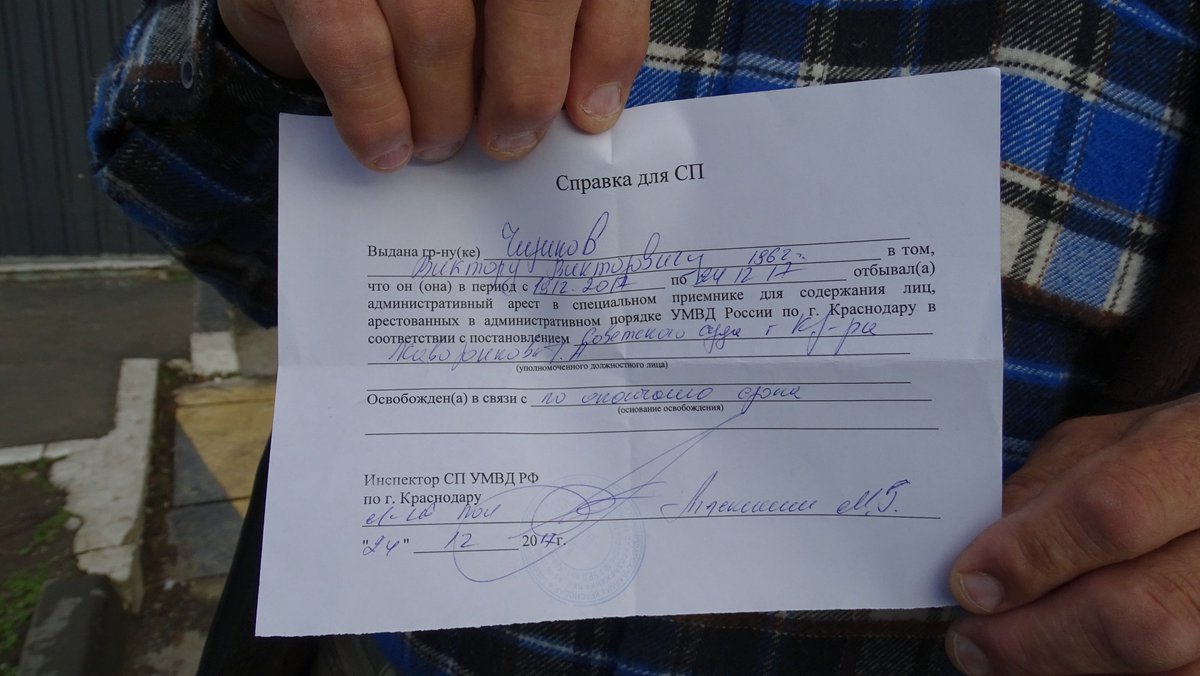 Справка для СП
Выдана гр-ну(ке) Чириков
Виктору Викторовичу 1962г. в том,
что он (она) в период с 12.12.2017 по 24 12 17 отбывал(а)
административный арест в специальном приемнике для содержания лиц,
арестованных в административном порядке УМВД России по г. Краснодару в
соответствии с постановлением Советского суда г Кр-ра
(уполномоченного должностного лица)
Освобожден(а) в связи с по окончанию срока
(основание освобождения)
Инспектор СП УМВД РФ
по г. Краснодару
М.Г.
"24" 12 2017г.